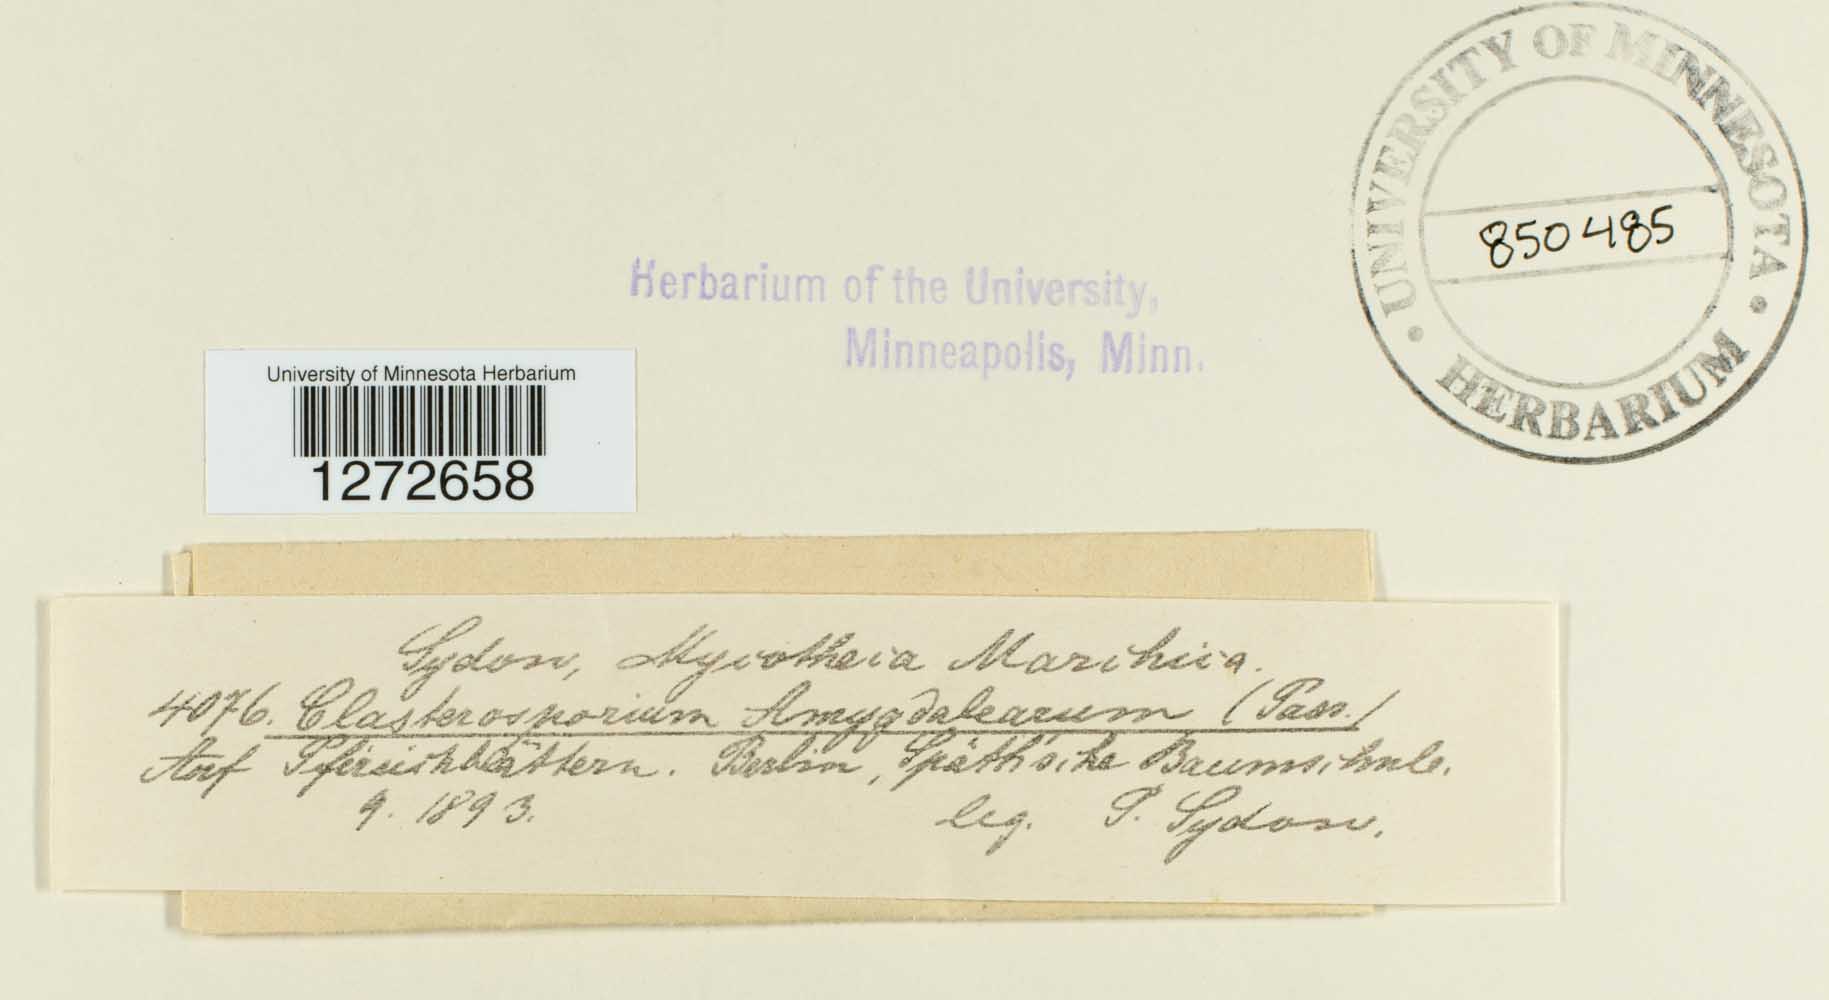 UNIVERSITY OF MINNESOTA
HERBARIUM
850485
Herbarium of the University,
Minneapolis, Minn.
University of Minnesota Herbarium
1272658
Sydow, Mycotheca Marchica.
4076. Clasterosporium Amygdalearum (Pass.)
Auf Pfirsichblättern. Berlin, Späth'sche Baumschule.
9. 1893.
leg. P. Sydow.